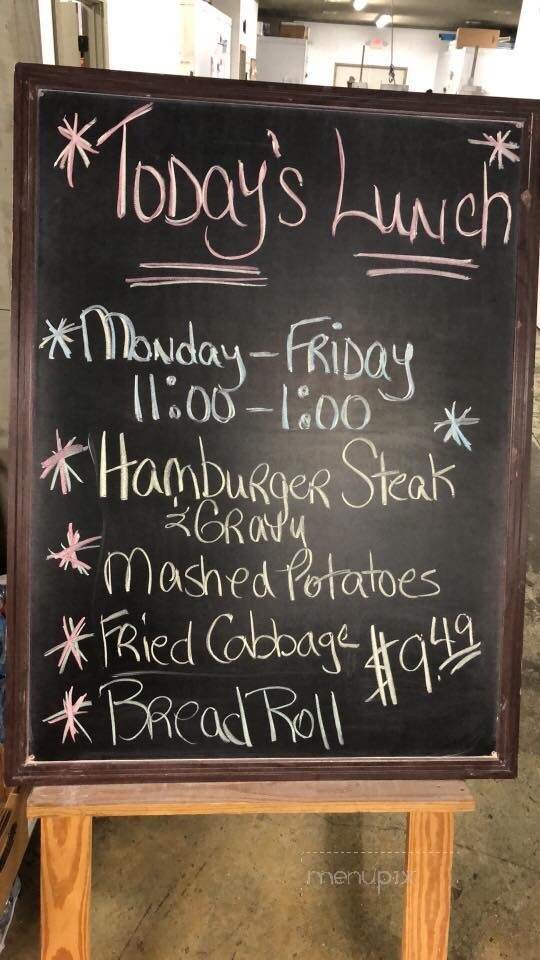 Today's Lunch
Monday - Friday
11:00 - 1:00
Hamburger Steak
& Gravy
Mashed Potatoes
Fried Cabbage $9.49
Bread Roll
menupix